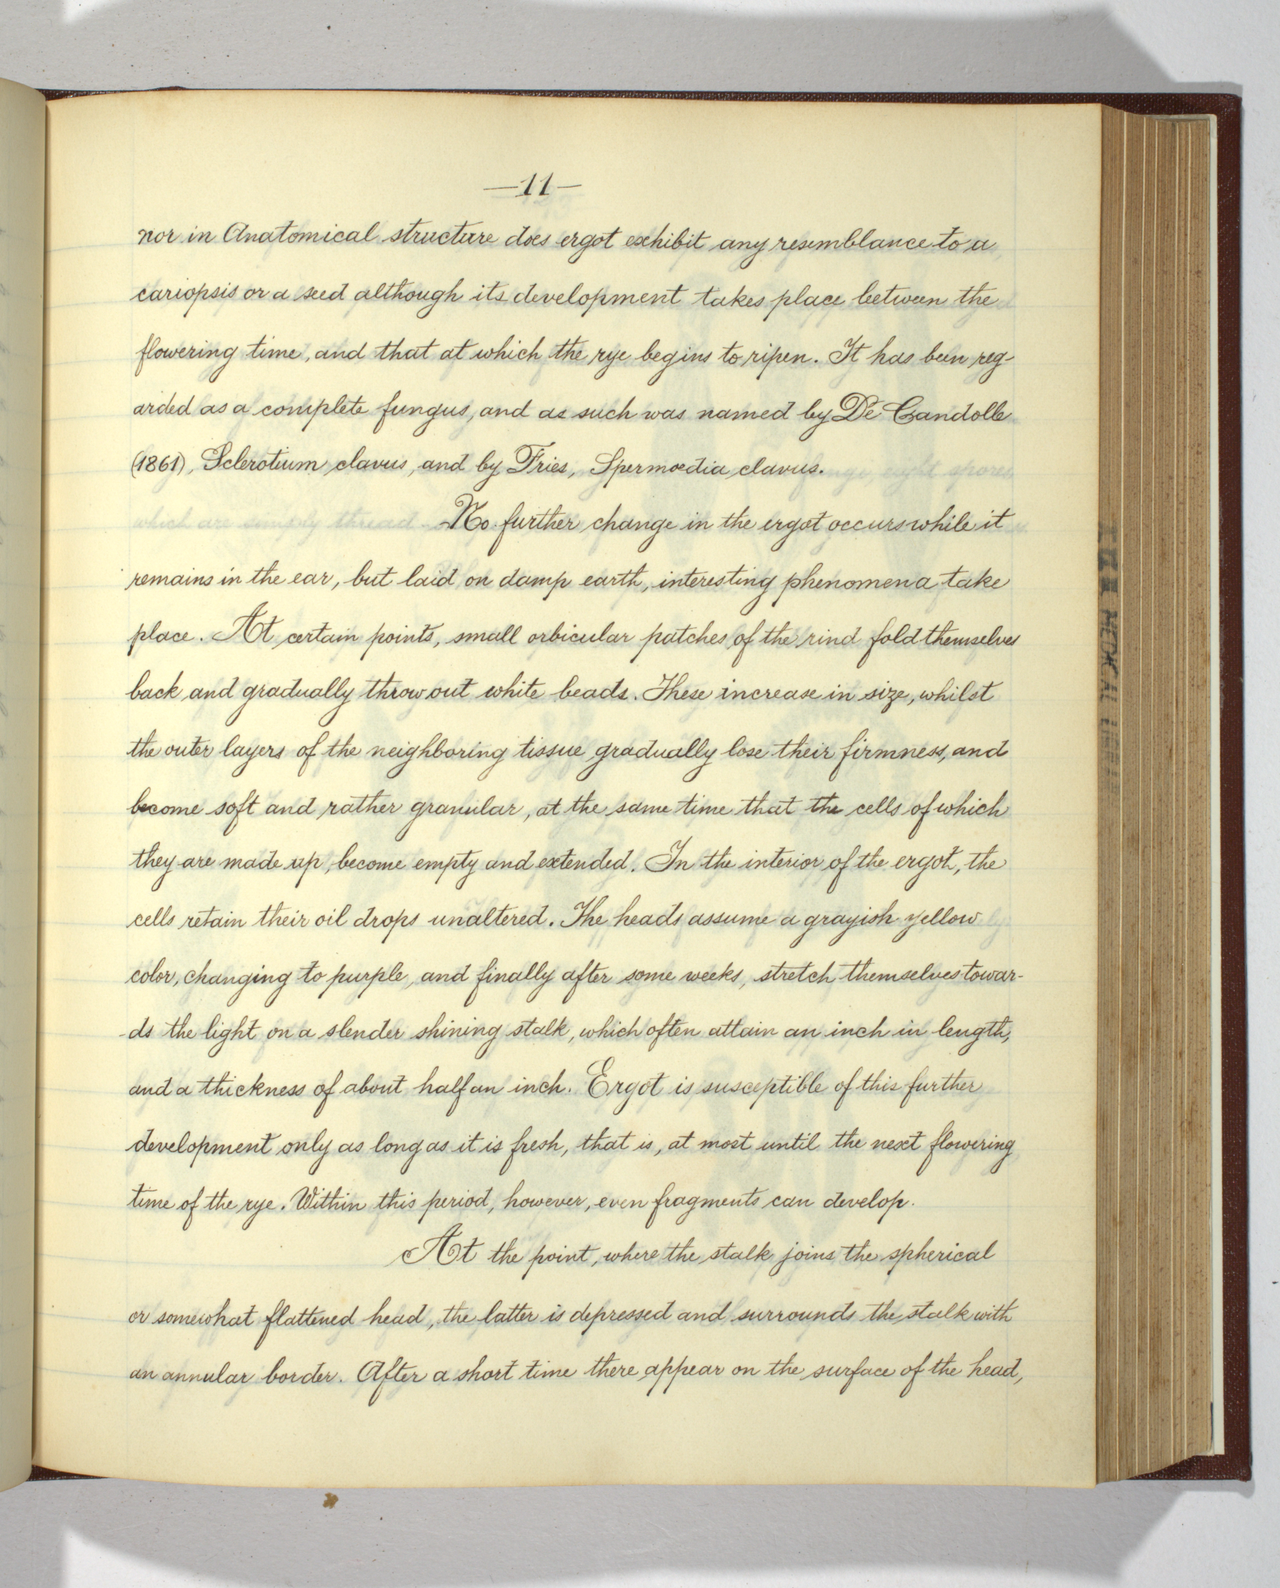 —11—
nor in Anatomical structure does ergot exhibit any resemblance to a
cariopsis or a seed although its development takes place between the
flowering time, and that at which the rye begins to ripen. It has been reg-
arded as a complete fungus, and as such was named by De Candolle
(1861), Sclerotium clavus, and by Fries, Spermoedia clavus.
No further change in the ergot occurs while it
remains in the ear, but laid on damp earth, interesting phenomena take
place. At certain points, small orbicular patches of the rind fold themselves
back and gradually throw out white beads. These increase in size, whilst
the outer layers of the neighboring tissue gradually lose their firmness, and
become soft and rather granular, at the same time that the cells of which
they are made up, become empty and extended. In the interior of the ergot, the
cells retain their oil drops unaltered. The heads assume a grayish yellow
color, changing to purple, and finally after some weeks, stretch themselves towar-
-ds the light on a slender shining stalk, which often attain an inch in length,
and a thickness of about half an inch. Ergot is susceptible of this further
development only as long as it is fresh, that is, at most until the next flowering
time of the rye. Within this period, however, even fragments can develop.
At the point, where the stalk joins the spherical
or somewhat flattened head, the latter is depressed and surrounds the stalk with
an annular border. After a short time there appear on the surface of the head,
MEDICAL